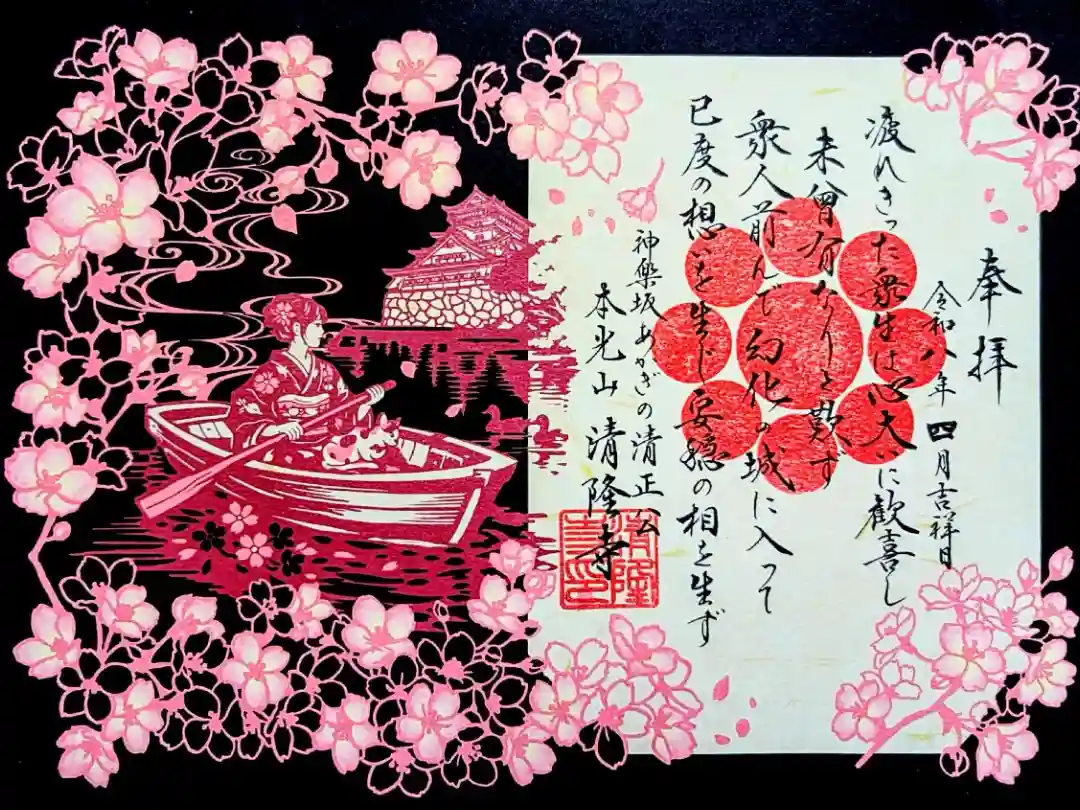 奉拝
令和八年 四月吉祥日
疲れきった衆生は心大いに歓喜し
未曾有なりと歎ず
衆人前んで幻化の城に入って
已度の想いを生じ安穏の相を生ず
神樂坂あかぎの清正公
本光山 清隆寺